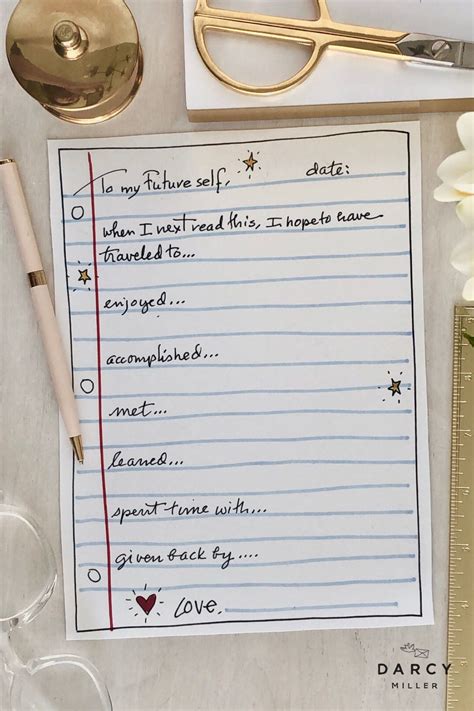 To my Future self, date:
when I next read this, I hope to have
traveled to...
enjoyed...
accomplished...
met...
leaned...
spent time with...
given back by....
Love,
DARCY
MILLER